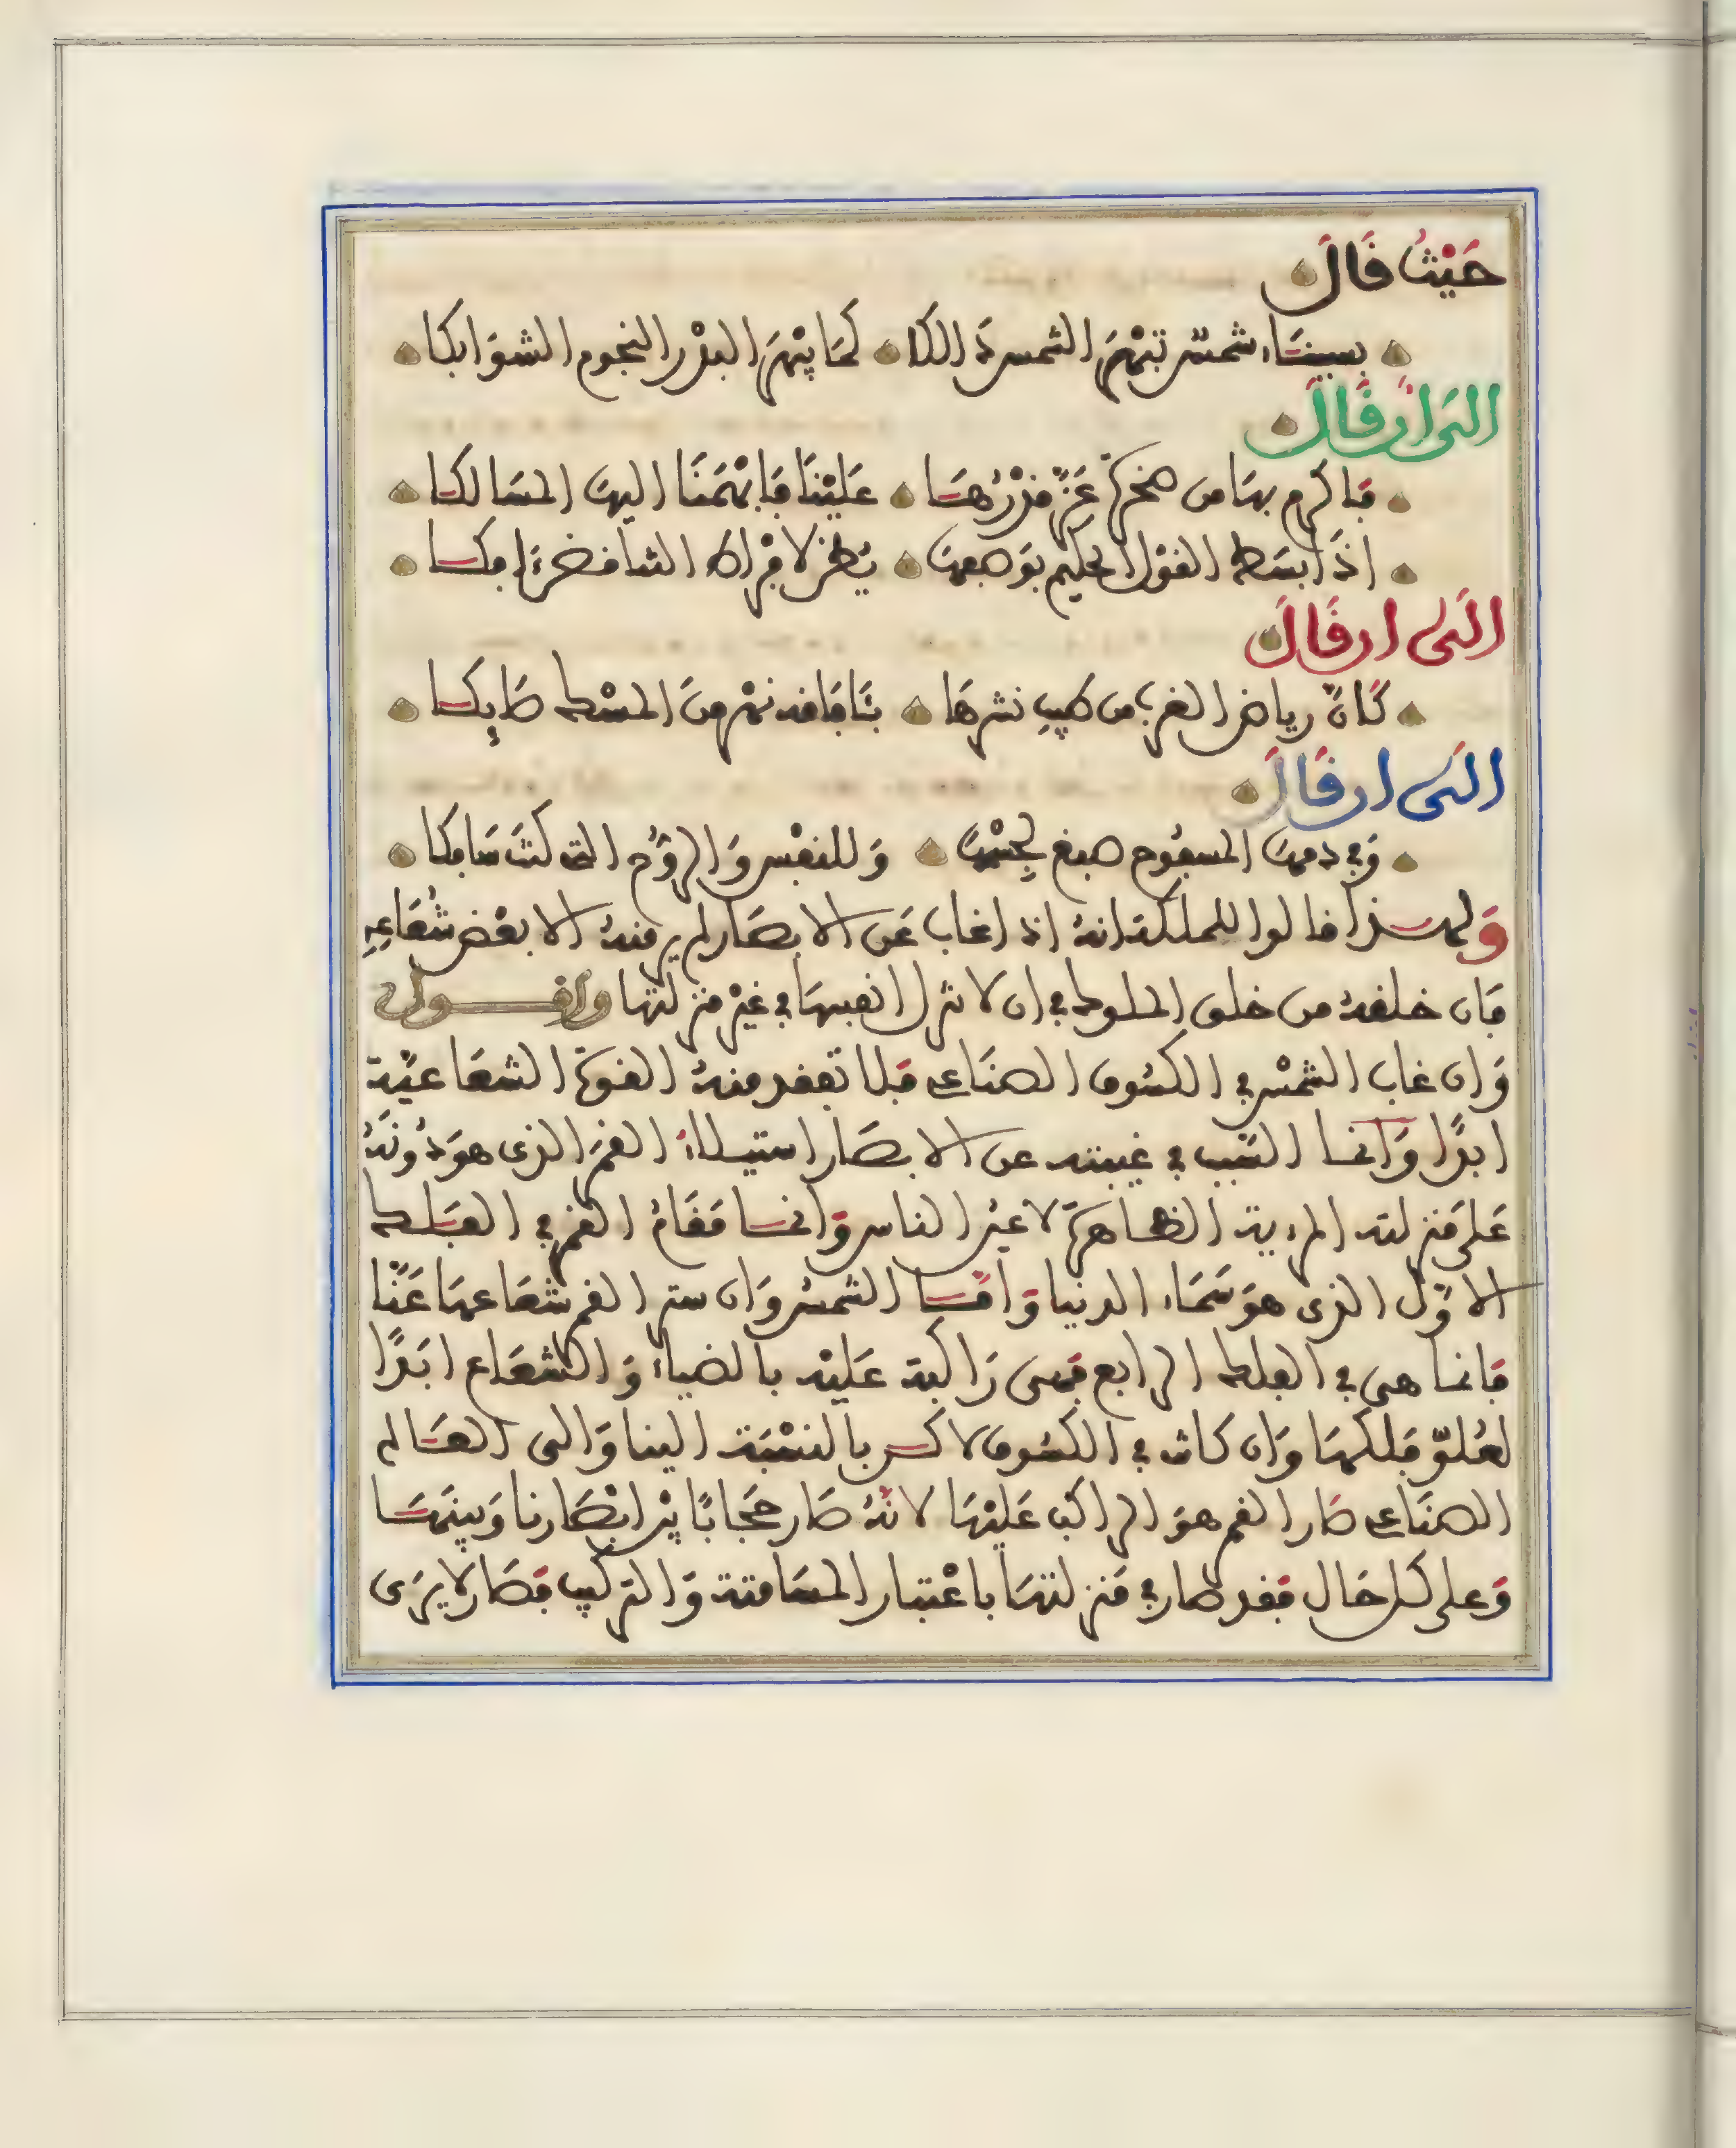 حَيْثُ قَالَ
بسيناء شمسٌ تبهَر الشمس ذَالكا كمَا يبْهَر البدْر النجوم الشوَابكا
الىَ ان قَالَ
فأكرم بهَا من صخرةٍ عَزَّ قدْرُهَا عَليْنَا فَأبْهَمنَا اليهَا المسَالكا
إذَا بسَط القوْل الحكيم بوَصفهَا يُظن لإفراط التناقض آفكا
الىَ ان قَالَ
كأنّ رياض الغرب من طيبِ نشرهَا بنَا فَاقد نمّ منَ المسْك صَايكا
الىَ ان قَالَ
وَفي دمهَا المسفُوح صبغ لجسْمهَا وَللنفْس وَالروُح التي كنتَ سَافكا
وَلهذا قالوا للمملكة انهُ اذا غاب عَن الابصَار لم ير منهُ الا بعْض شُعَاعِهِ
فَان خلقهُ من خلق الملوك في ان لا تنزل انفسهَا في غيْر منزلتها واقول
وَان غاب الشمْس في الكسُوف الصنَاعي فَلا تفقد منهُ القوة الشعَاعيَّة
ابدًا وَانما السَّبب في غيبته عن الابصَار استيلاءُ القمَر الذى هوَ دُونَهُ
عَلى مَنزلته المرءية الظاهرة لاعيُن الناس وَانما مَقَامُ القمر في الفَلك
الاوَّل الذى هوَ سَمَاء الدنيا وَامَّا الشمسُ وَان ستر القمر شعَاعهَا عَنَّا
فَانما هى في الفلك الرابع فَهى رَاكبة عَليْه بالضياء وَالشعَاع ابَدًا
لعُلوّ فَلكهَا وَان كانت في الكسُوف لاكن بالنسْبَة الينا وَالى العَالم
الصنَاعي صَار القمر هوَ الراكب عَليْهَا لانهُ صَار حجَابًا بيْن ابْصَارنا وَبينهَا
وَعلى كل حَال فَقد صار في مَنزلتهَا باعْتبار المسَامتة وَالتركيب فَصَار لا يرَى